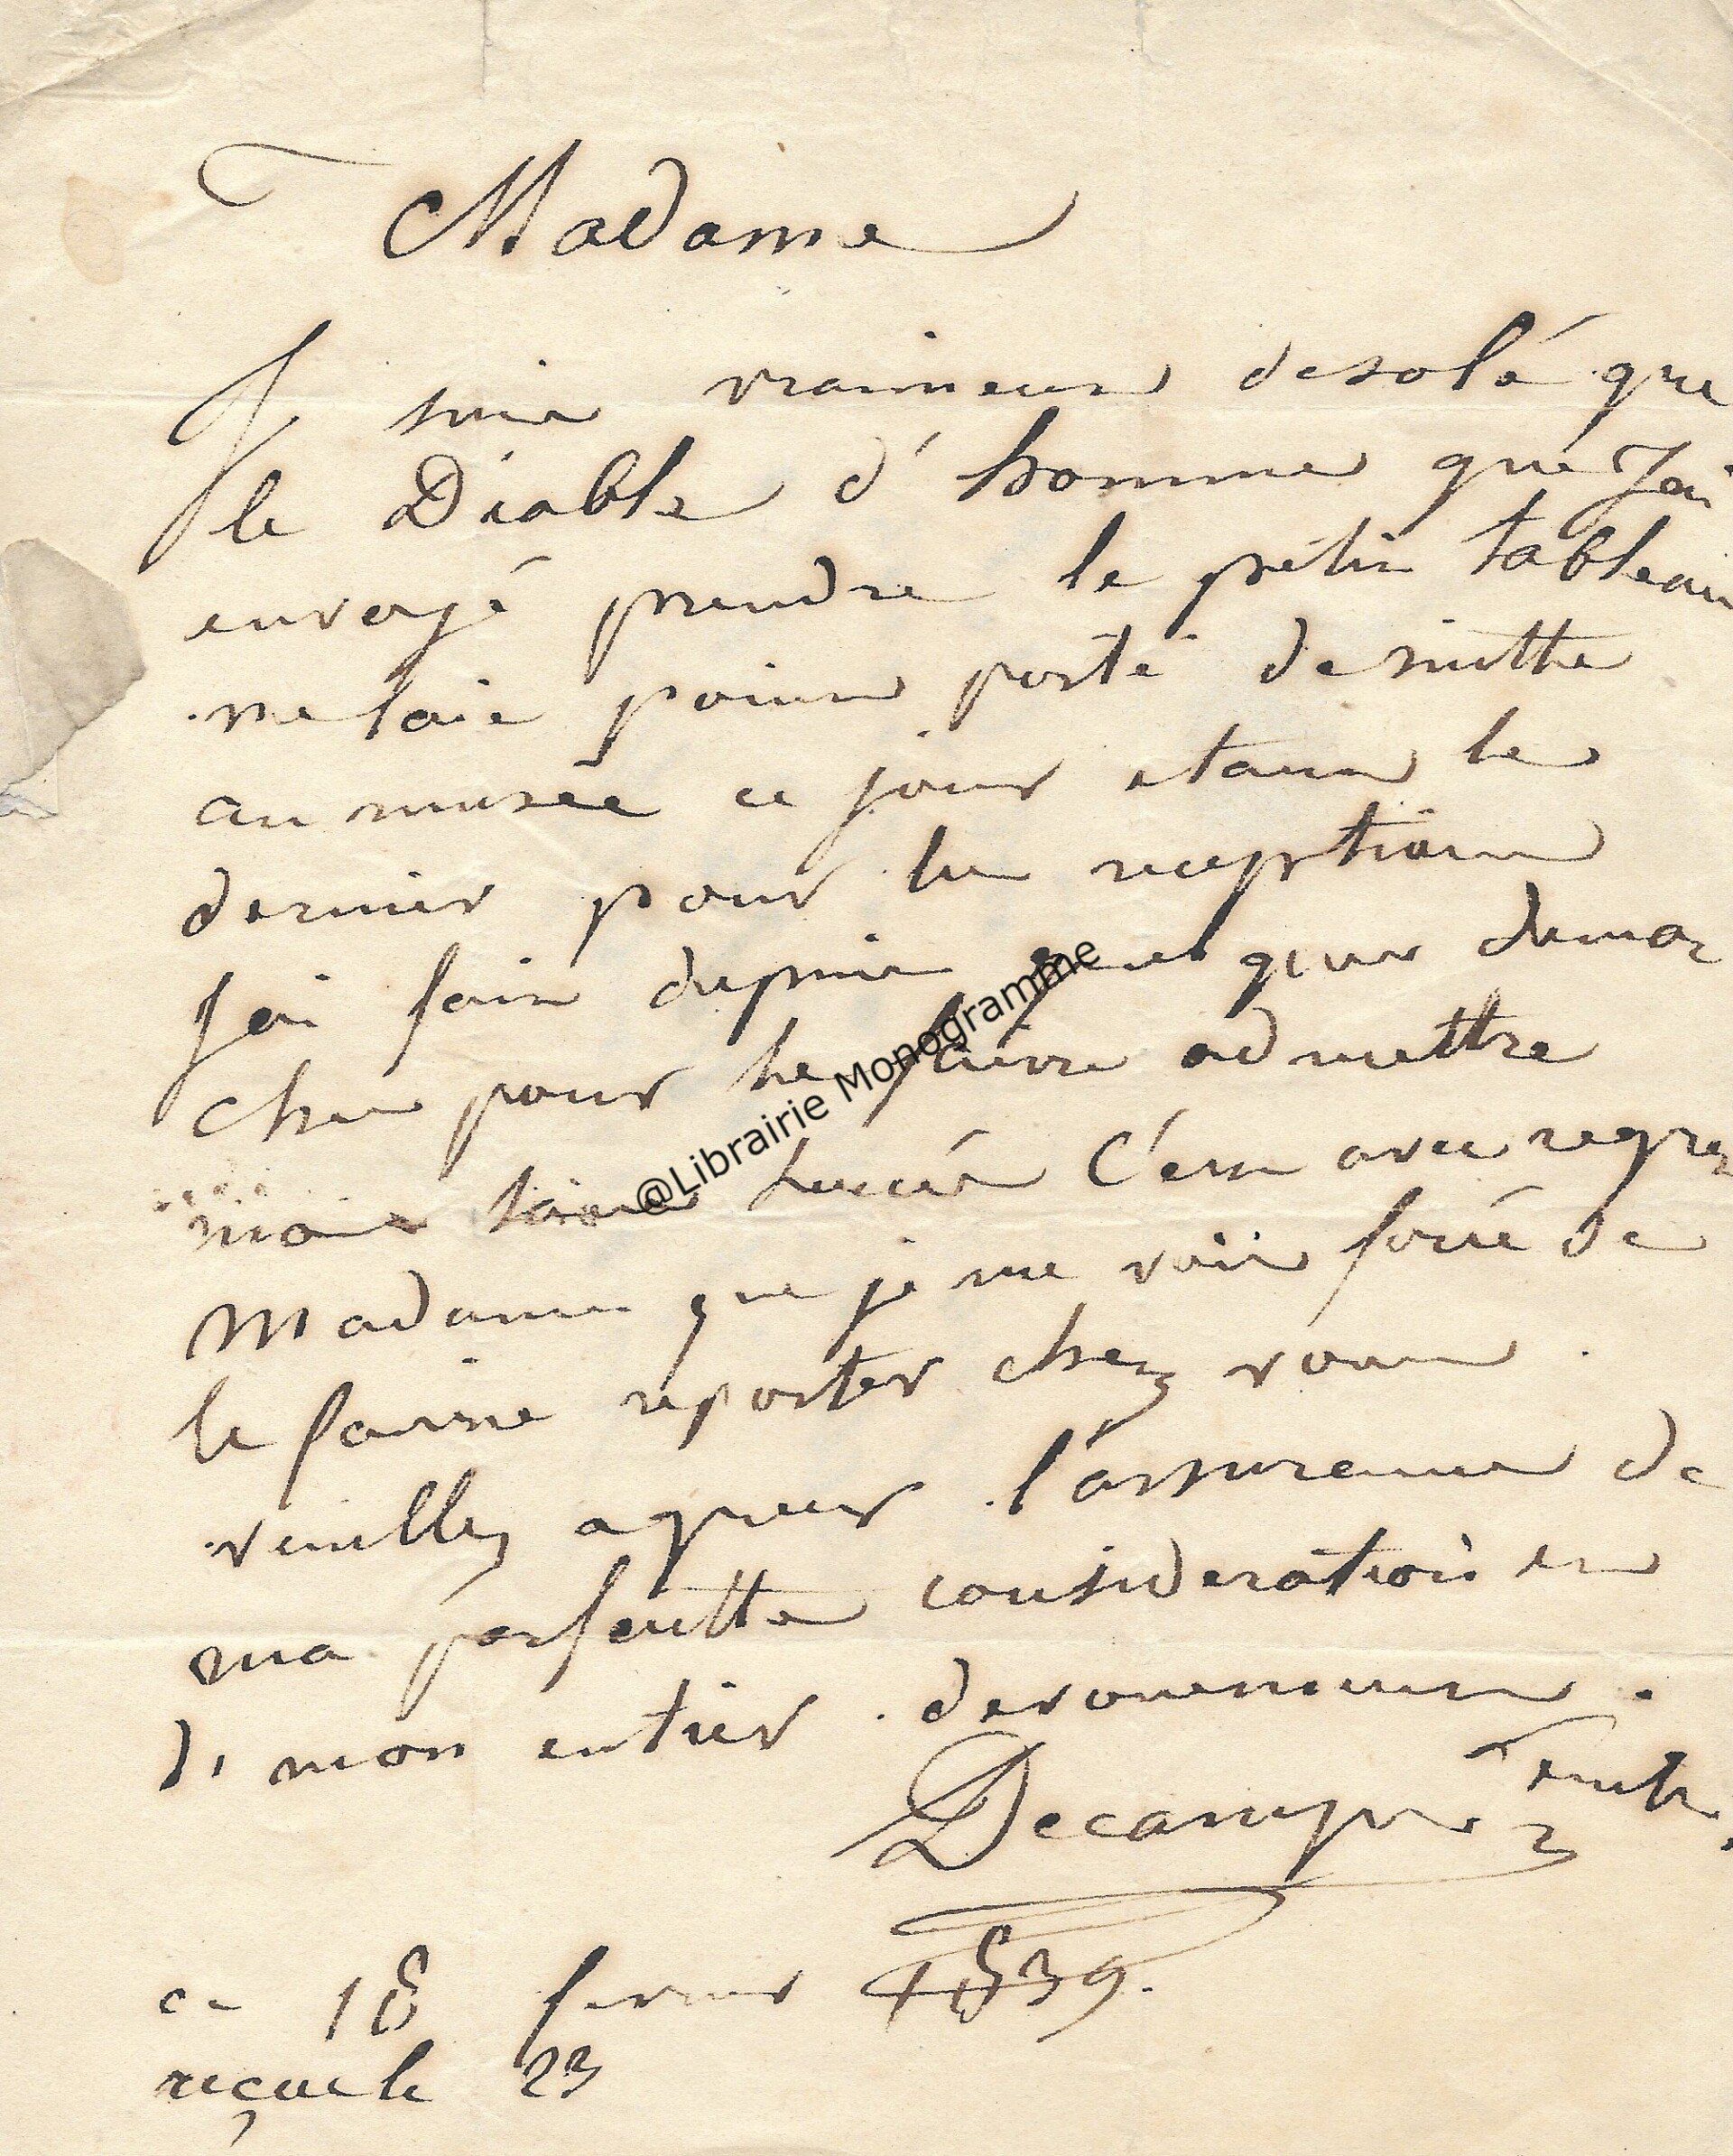 Madame
Je suis vraiment desolé que
le Diable d'homme que J'ai
envoyé prendre le petit tableau
ne l'aie point porté de suitte
au musée ce jour etant le
dernier pour les receptions
J'ai fait depuis quelques demar
ches pour le faire admettre
mais sans succès C'est avec regret
Madame que je me vois forcé de
le faire reporter chez vous.
veuillez agreer l'assurance de
ma parfaitte consideration et
de mon entier devouement.
Decamps
ce 18 fevrier 1839.
reçue le 23
@Librairie Monogramme